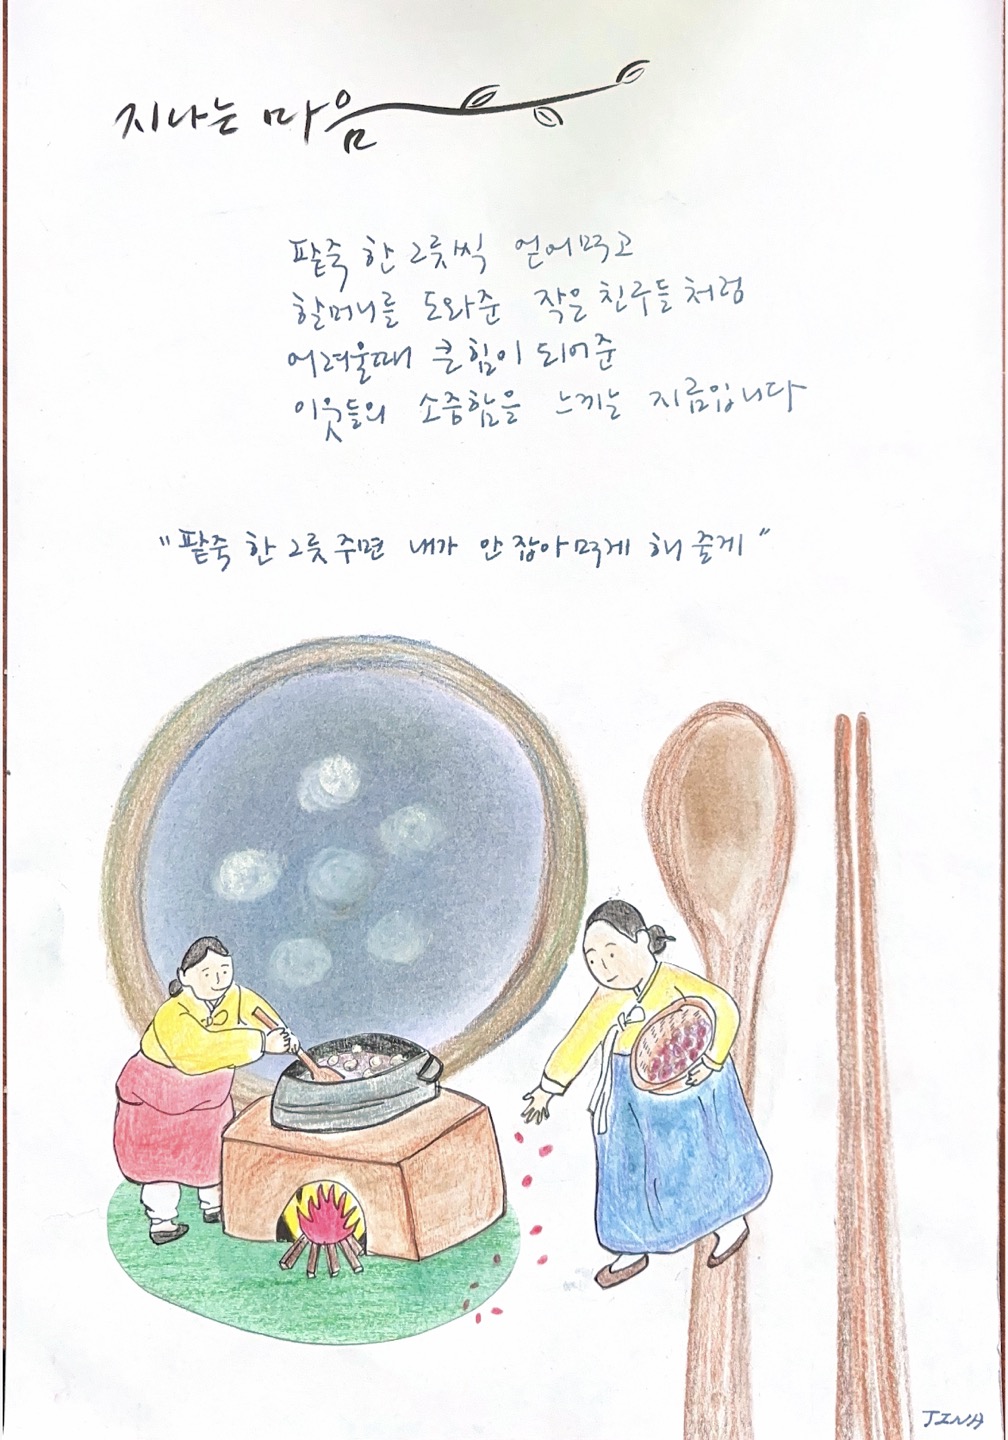 지나는 마음
팥죽 한 그릇씩 얻어먹고
할머니를 도와준 작은 친구들처럼
어려울때 큰 힘이 되어준
이웃들의 소중함을 느끼는 지금입니다
"팥죽 한 그릇 주면 내가 안 잡아먹게 해 줄게"
JINA